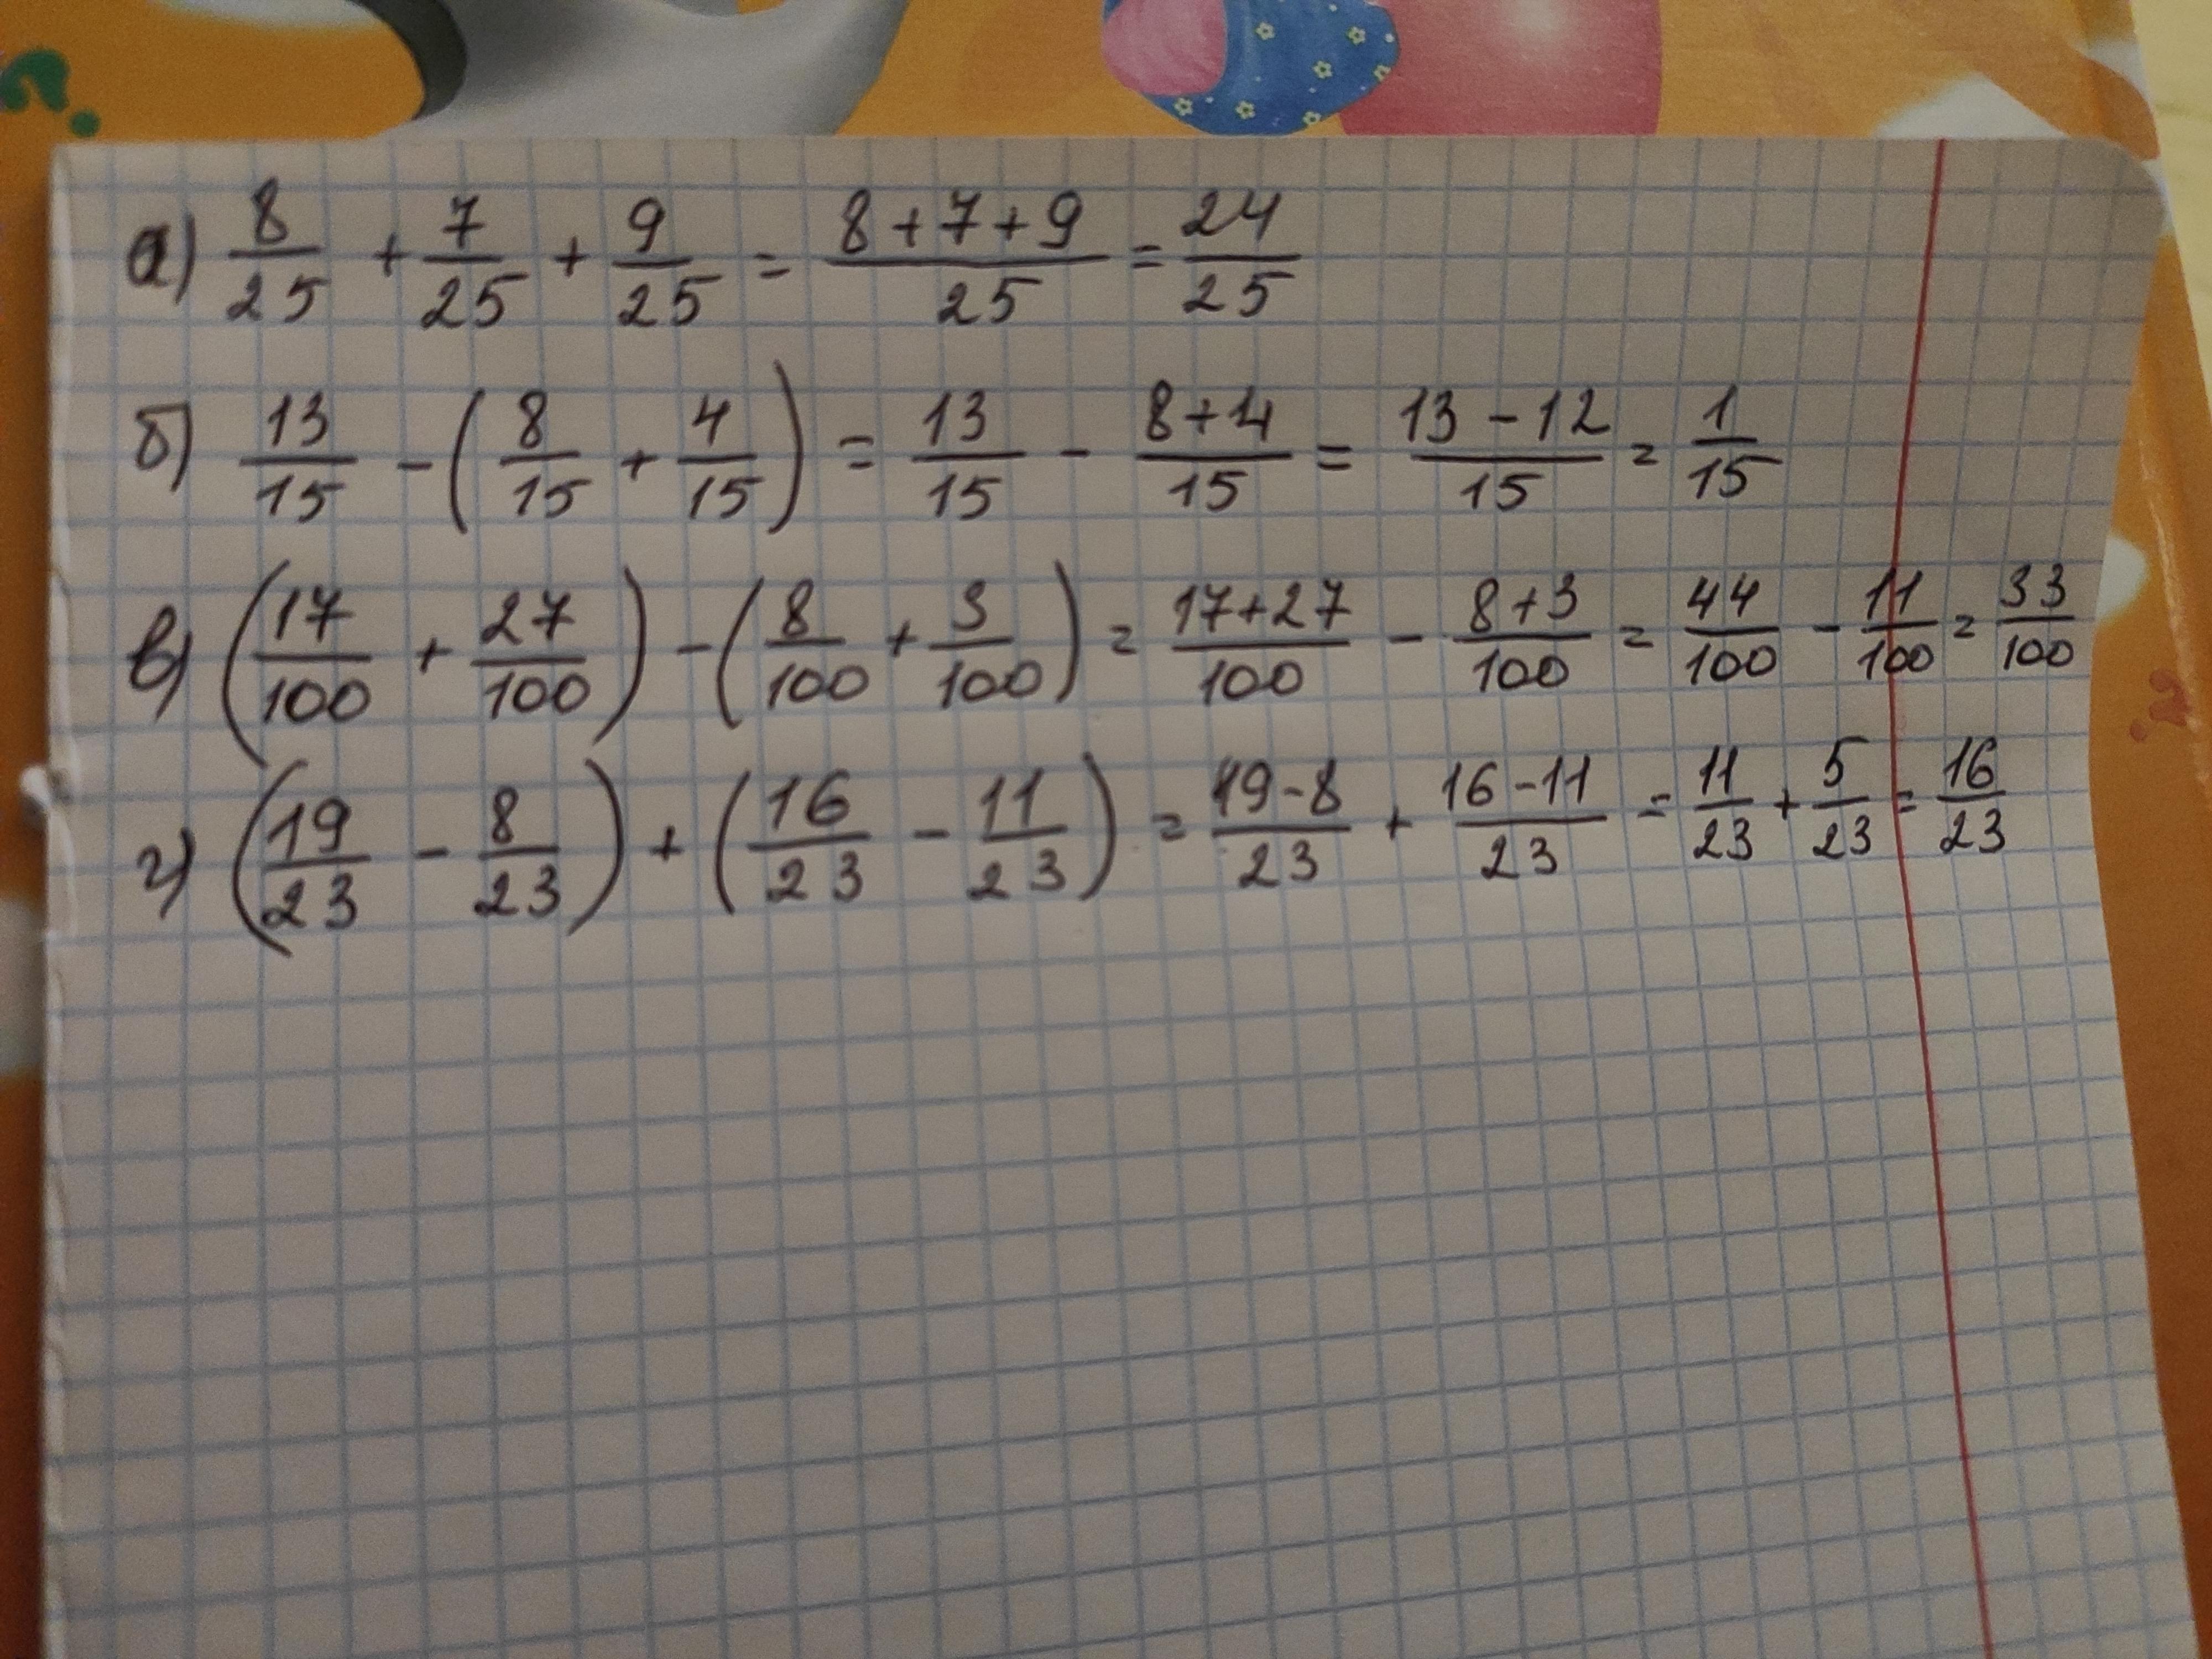 а) 8/25 + 7/25 + 9/25 = (8+7+9)/25 = 24/25
б) 13/15 - (8/15 + 4/15) = 13/15 - (8+4)/15 = (13-12)/15 = 1/15
в) (17/100 + 27/100) - (8/100 + 3/100) = (17+27)/100 - (8+3)/100 = 44/100 - 11/100 = 33/100
г) (19/23 - 8/23) + (16/23 - 11/23) = (19-8)/23 + (16-11)/23 = 11/23 + 5/23 = 16/23